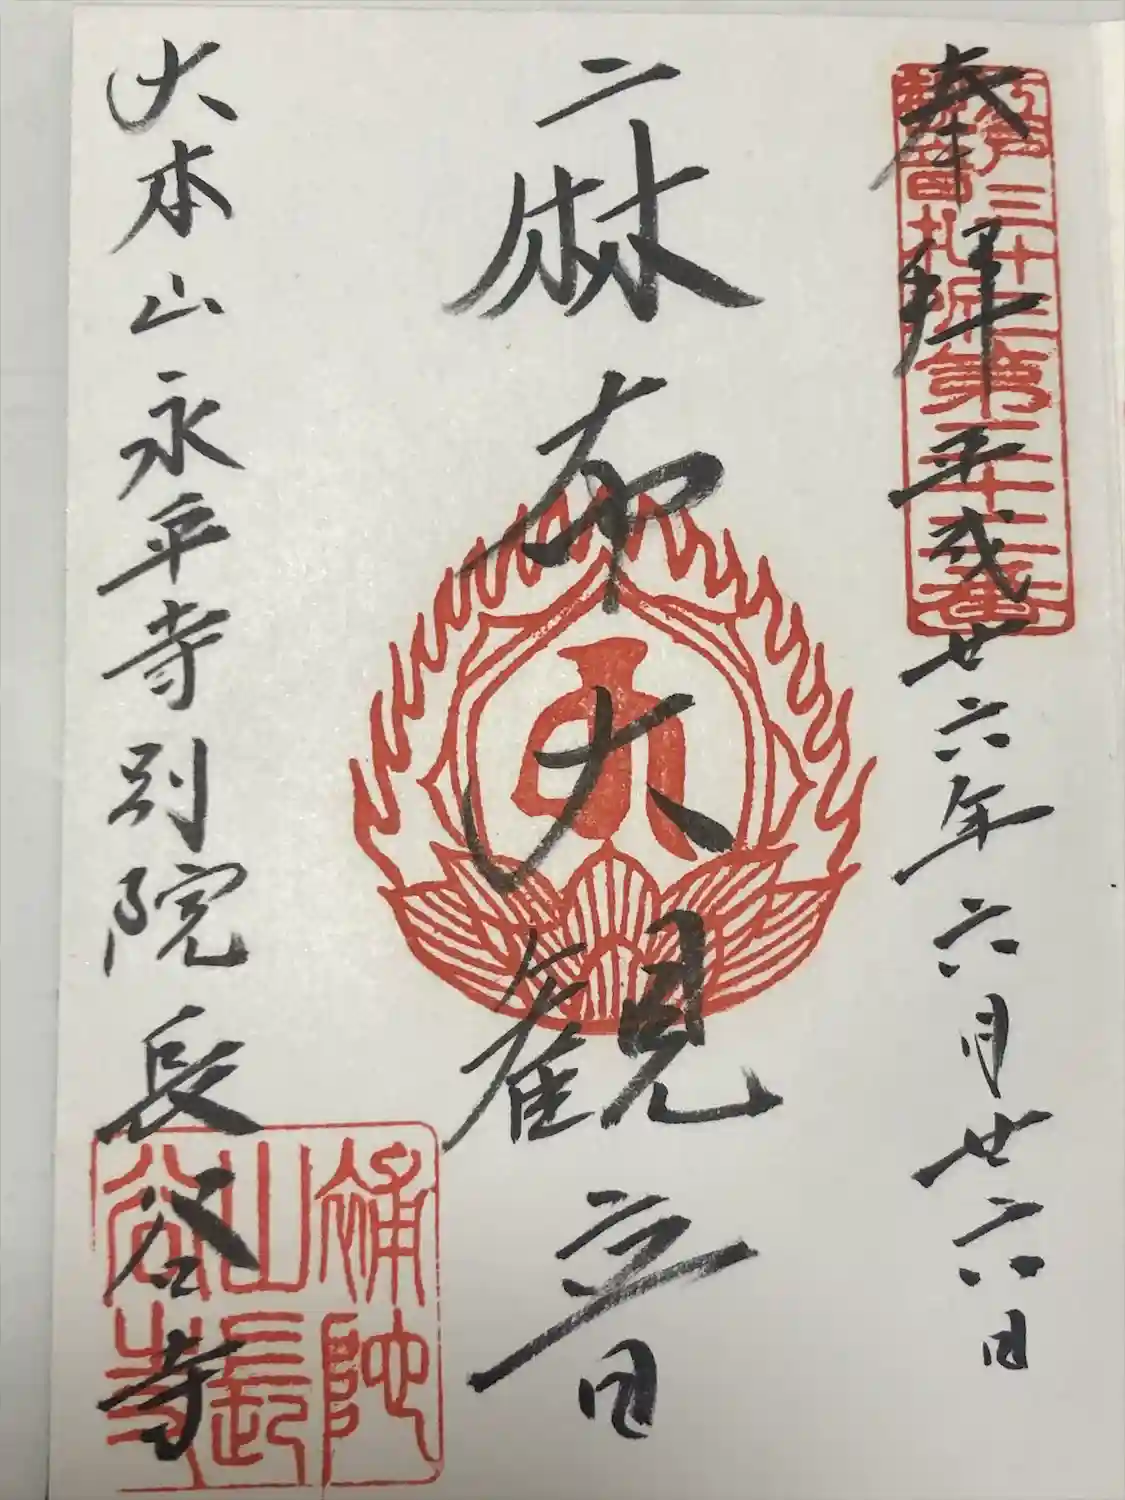 奉拝 平成廿六年六月廿六日
江戸三十三
観音札所第二十二番
麻布大観音
大本山永平寺別院長谷寺
補陀
山長
谷寺